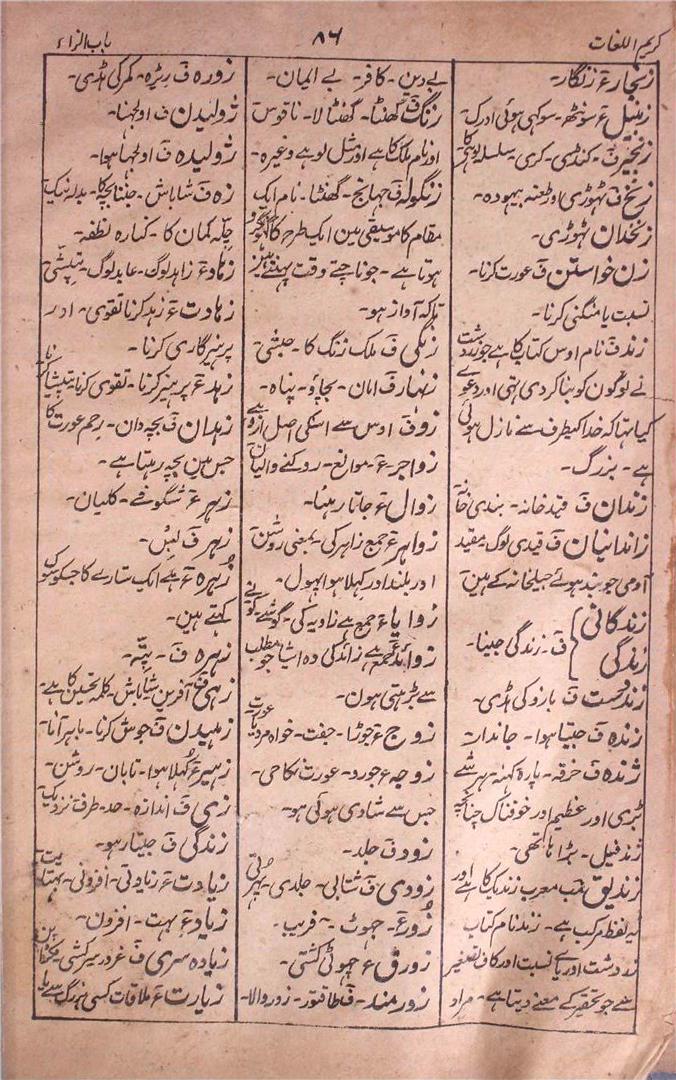 کریم اللغات
۸۶
باب الزاء
زنجار ع زنگار۔
زنجبیل ع سونٹھ۔ سوکھی ہوئی ادرک۔
زنجیر ف۔ کنڈی۔ کڑی۔ سلسلہ لوہیکا
زنخ ف ٹہوڑی اور طعنہ بیہودہ۔
زنخدان ٹہوڑی۔
زن خواستن ف عورت کرنا۔
نسبت یا منگنی کرنا۔
زند ف نام اوس کتاب کا ہے جو زردشت
نے لوگون کو بنا کر دی تہی اور دعوے
کیا تہا کہ خدا کیطرف سے نازل ہوئی
ہے۔ بزرگ۔
زندان ف قید خانہ۔ بندی خانہ
زندانیان ف قیدی لوگ مقید
آدمی جو بند ہوئے جیلخانہ کے ہین
زندگانی
زندگی
ف۔ زندگی جینا۔
زند دست ف بازو کی ہڈی۔
زندہ ف جیتا ہوا۔ جاندار۔
ژندہ ف خرقہ۔ پارہ کہنہ۔ ہر شے
بڑی اور عظیم اور خوفناک چنانچہ
ژند فیل۔ بڑا ہاتھی۔
زندیق معرب زندیک کا ہے اور
یہ لفظ مرکب ہے۔ زند نام کتاب
زردشت اور یائے نسبت اور کاف تصغیر
سے جو تحقیر کے معنے دیتا ہے۔ مراد
بے دین۔ کافر۔ بے ایمان۔
زنگ ف گھنٹا۔ گھنٹالا۔ ناقوس
اور نام ملک کا ہے اور مثل لوہے وغیرہ۔
زنگولہ ف جہانج۔ گھنٹا۔ نام ایک
مقام کا موسیقی مین ایک طرح کا گھونگرو
ہوتا ہے۔ جو ناچتے وقت پہنتے ہین
تاکہ آواز ہو۔
زنگی ف ملک زنگ کا۔ حبشی۔
زنہار ف امان۔ بچاؤ۔ پناہ۔
زو ف اوس سے اسکی اصل ازو ہے
زواجر ع۔ موانع۔ روکنے والیان
زوال ع جاتا رہنا۔
زواہر ع جمع زاہر کی۔ بمعنی روشن
اور بلند اور کہلا ہوا پہول۔
زوایا ع جمع ہے زاویہ کی۔ گوشے۔ کونے
زوائد ع جمع ہے زائد کی وہ اشیا جو مطلب
سے بڑہتی ہون۔
زوج ع جوڑا۔ جفت۔ خواہ مرد یا عورت
زوجہ ع جورو۔ عورت نکاحی۔
جس سے شادی ہوئی ہو۔
زود ف جلد۔
زودی ف شتابی۔ جلدی۔ پہرتی
زور ع۔ جہوٹ۔ فریب۔
زورق ع چہوٹی کشتی۔
زورمند۔ ف طاقتور۔ زور والا۔
زورہ ف ریڑہ۔ کمر کی ہڈی۔
ژولیدن ف اولجہنا۔
ژولیدہ ف اولجہا ہوا۔
زہ ف شاباش۔ جننا بچیکا۔ بدلہ نیک
چلّہ کمان کا۔ کنارہ نطفہ۔
زہاد ع زاہد لوگ۔ عابد لوگ۔ تپشی
زہادت ع زہد کرنا تقوی۔ اور
پرہیزگاری کرنا۔
زہد ع پرہیز کرنا۔ تقوی کرنا۔ تپشیا کرنا
زہدان ف بچہ دان۔ رحم عورت کا
جس مین بچہ رہتا ہے۔
زہر ع شگوفے۔ کلیان۔
زہر ف بس۔
زہرہ ع ہے ایک ستارے کا جسکو سوک
کہتے ہین۔
زہرہ ف۔ پتّہ۔
زہی ف آفرین شاباش۔ کلمہ تحسین کا ہے۔
زہیدن ف جوش کرنا۔ باہر آنا۔
زہیر ع کہلا ہوا۔ تابان۔ روشن۔
زی ف اندازہ۔ حد۔ طرف نزدیک
زندگی ف جیتا رہو۔
زیادت ع زیادتی۔ افزونی۔ بہتایت
زیادہ ع بہت۔ افزون۔
زیادہ سری ف غرور سرکشی۔
زیارت ع ملاقات کسی بزرگ سے